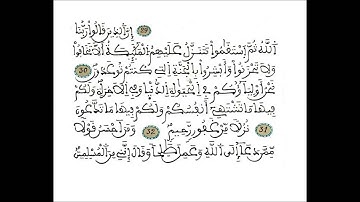 29 إِنَّ ٱلذِينَ قَالُوا۟ رَبُّنَا
ٱللَّهُ ثُمَّ ٱسْتَقَٰمُوا۟ تَتَنَزَّلُ عَلَيْهِمُ ٱلْمَلَٰٓئِكَةُ أَلَّا تَخَافُوا۟
وَلَا تَحْزَنُوا۟ وَأَبْشِرُوا۟ بِالْجَنَّةِ ٱلتِى كُنتُمْ تُوعَدُونَ 30
نَحْنُ أَوْلِيَآؤُكُمْ فِى ٱلْحَيَوٰةِ ٱلدُّنْيَا وَفِى ٱلْأَخِرَةِ وَلَكُمْ
فِيهَا مَا تَشْتَهِىٓ أَنفُسُكُمْ وَلَكُمْ فِيهَا مَا تَدَّعُونَ
31 نُزُلًا مِّنْ غَفُورٍ رَّحِيمٍ 32 وَمَنْ أَحْسَنُ قَوْلًا
مِّمَّن دَعَآ إِلَى ٱللَّهِ وَعَمِلَ صَٰلِحًا وَقَالَ إِنَّنِى مِنَ ٱلْمُسْلِمِينَ